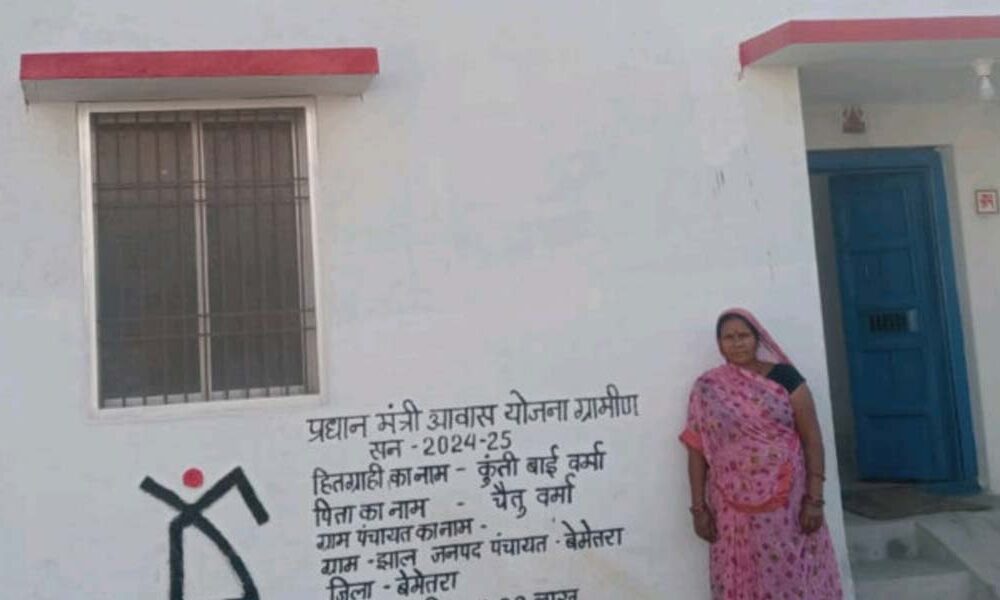 प्रधान मंत्री आवास योजना ग्रामीण
सन - 2024-25
हितग्राही का नाम - कुंती बाई वर्मा
पिता का नाम - चैतु वर्मा
ग्राम पंचायत का नाम -
ग्राम - झाल जनपद पंचायत - बेमेतरा
जिला - बेमेतरा